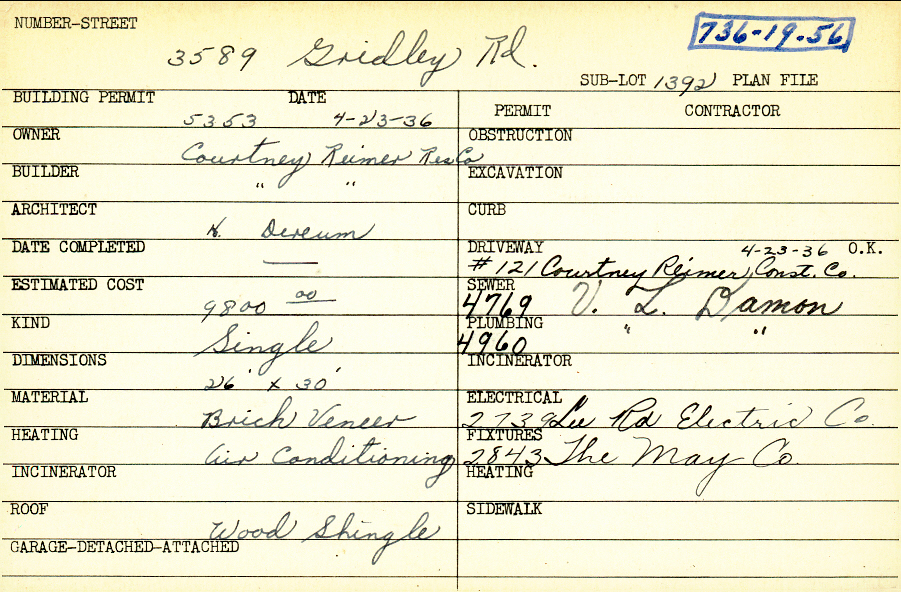 NUMBER-STREET
736-19-56
3589 Gridley Rd.
SUB-LOT 1392 PLAN FILE
BUILDING PERMIT DATE
5353 4-23-36
OWNER
Courtney Reimer Res Co
BUILDER
" "
ARCHITECT
H. Dercum
DATE COMPLETED
—
ESTIMATED COST
9800 00
KIND
Single
DIMENSIONS
26' x 30'
MATERIAL
Brick Veneer
HEATING
Air Conditioning
INCINERATOR
ROOF
Wood Shingle
GARAGE-DETACHED-ATTACHED
PERMIT CONTRACTOR
OBSTRUCTION
EXCAVATION
CURB
DRIVEWAY 4-23-36 O.K.
#121 Courtney Reimer Const. Co.
SEWER
4769 V. L. Damon
PLUMBING
4960 " "
INCINERATOR
ELECTRICAL
2739 Lee Rd Electric Co.
FIXTURES
2843 The May Co.
HEATING
SIDEWALK